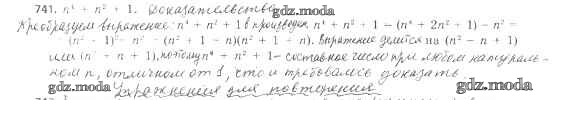 741. n⁴ + n² + 1. Доказательство
gdz.moda
Преобразуем выражение: n⁴ + n² + 1 в произведен. n⁴ + n² + 1 = (n⁴ + 2n² + 1) − n² =
= (n² + 1)² − n² = (n² + 1 − n)(n² + 1 + n). Выражение делится на (n² − n + 1)
или (n² + n + 1), потому n⁴ + n² + 1 – составное число при любом натураль-
ном n, отличном от 1, что и требовалось доказать.
gdz.moda
gdz.moda
Упражнения для повторения